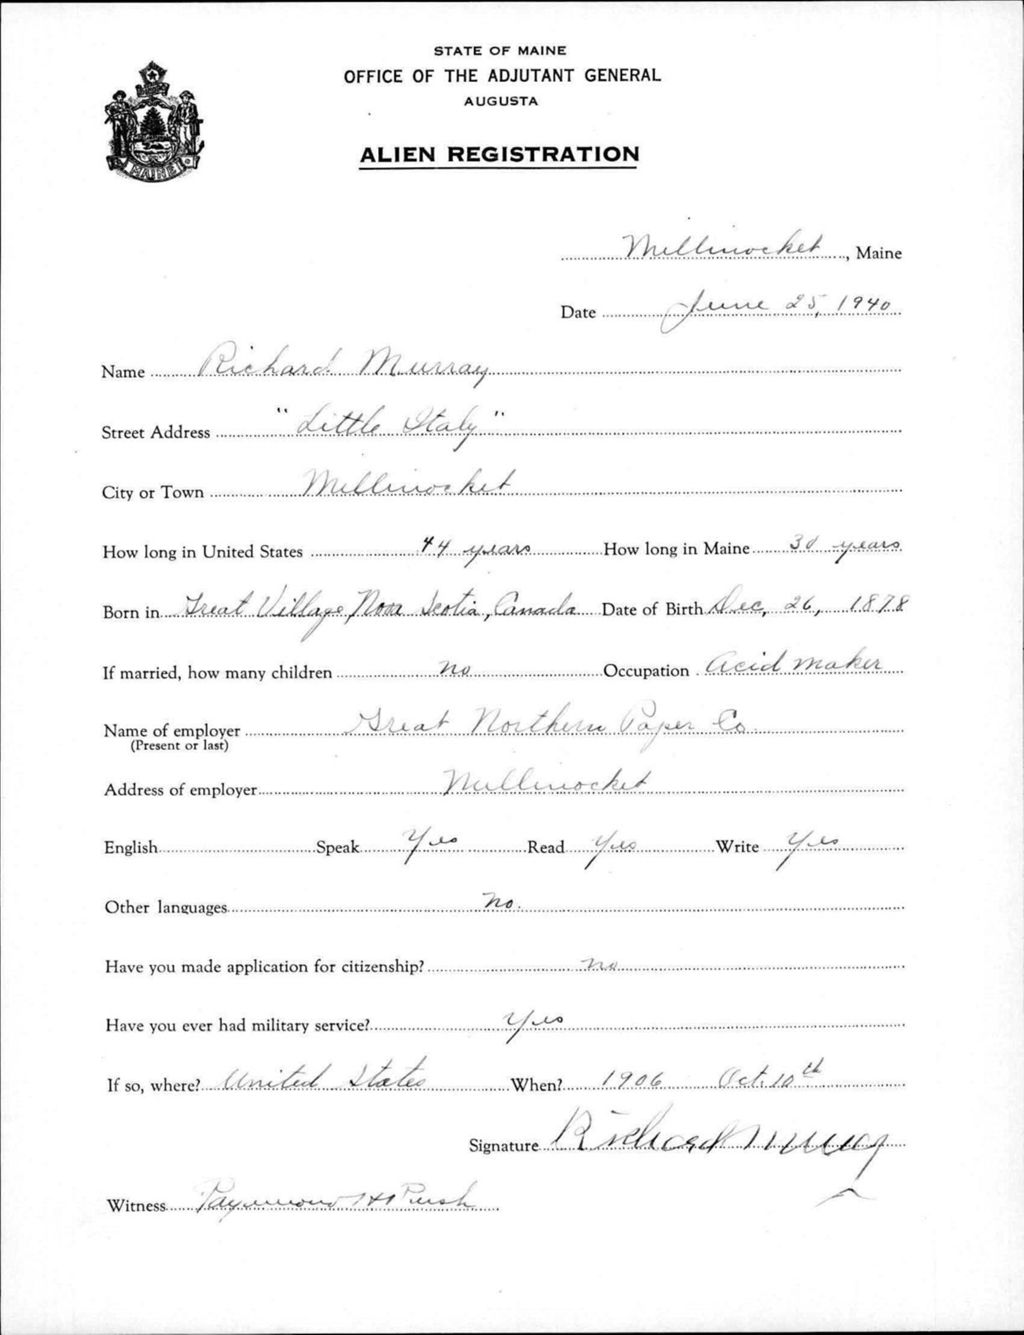 STATE OF MAINE
OFFICE OF THE ADJUTANT GENERAL
AUGUSTA
ALIEN REGISTRATION
MAINE
Millinocket, Maine
Date June 25, 1940
Name Richard Murray
Street Address "Little Italy"
City or Town Millinocket
How long in United States 44 years How long in Maine 30 years
Born in Great Village, Nova Scotia, Canada Date of Birth Dec, 26, 1878
If married, how many children no Occupation Acid maker
Name of employer Great Northern Paper Co
(Present or last)
Address of employer Millinocket
English Speak Yes Read Yes Write Yes
Other languages no.
Have you made application for citizenship? no
Have you ever had military service? Yes
If so, where? United States When? 1906 Oct. 10th
Signature Richard Murray
Witness Raymond